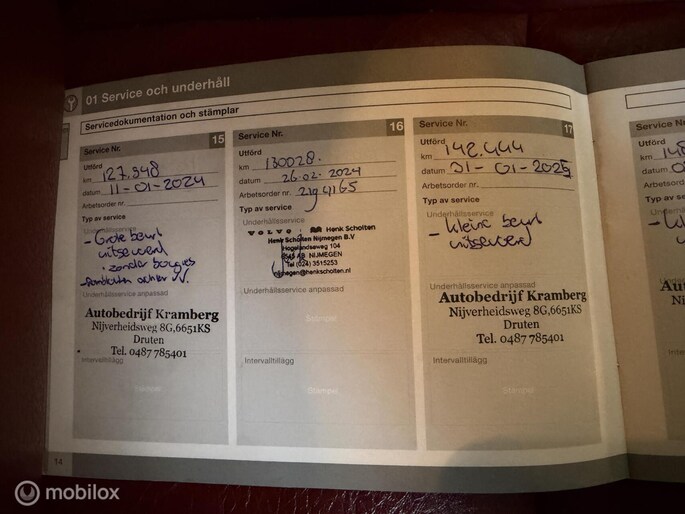 01 Service och underhåll
Servicedokumentation och stämplar
Service Nr. 15
Utförd
km 127.948
datum 11-01-2024
Arbetsorder nr.
Typ av service
Underhållsservice
- Grote beurt
uitgevoerd
zonder bougies
Underhållsservice anpassad
Autobedrijf Kramberg
Nijverheidsweg 8G,6651KS
Druten
Tel. 0487 785401
Intervalltillägg
Stämpel
Service Nr. 16
Utförd
km 130028.
datum 26-02-2024
Arbetsorder nr. 2194165
Typ av service
Underhållsservice
VOLVO Henk Scholten
Henk Scholten Nijmegen B.V
Hogelandseweg 104
6545 AB NIJMEGEN
Tel (024) 3515253
nijmegen@henkscholten.nl
Underhållsservice anpassad
Stämpel
Intervalltillägg
Stämpel
Service Nr. 17
Utförd
km 142.444
datum 31-01-2025
Arbetsorder nr.
Typ av service
Underhållsservice
- kleine beurt
uitgevoerd
Underhållsservice anpassad
Autobedrijf Kramberg
Nijverheidsweg 8G,6651KS
Druten
Tel. 0487 785401
Intervalltillägg
Stämpel
14
Service Nr
Utförd
km
datum
Typ av
mobilox